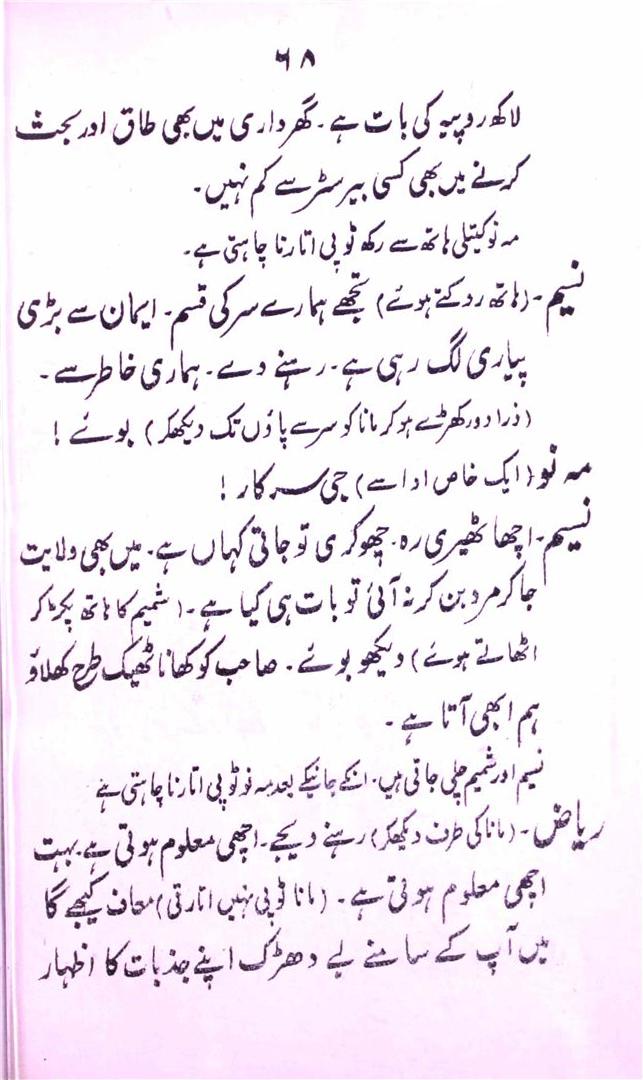 ۶۸
لاکھ روپیہ کی بات ہے۔ گھر داری میں بھی طاق اور بحث
کرنے میں بھی کسی بیرسٹر سے کم نہیں۔
مہ نو کیتلی ہاتھ سے رکھ ٹوپی اتارنا چاہتی ہے۔
نسیم۔ (ہاتھ روکتے ہوئے) تجھے ہمارے سر کی قسم۔ ایمان سے بڑی
پیاری لگ رہی ہے۔ رہنے دے۔ ہماری خاطر سے۔
(ذرا دور کھڑے ہو کر مانا کو سر سے پاؤں تک دیکھکر) بوئے!
مہ نو (ایک خاص ادا سے) جی سرکار!
نسیم۔ اچھا ٹھیری رہ۔ چھوکری تو جاتی کہاں ہے۔ میں بھی ولایت
جا کر مرد بن کر نہ آئی تو بات ہی کیا ہے۔ (شمیم کا ہاتھ پکڑ کر
اٹھاتے ہوئے) دیکھو بوئے۔ صاحب کو کھانا ٹھیک طرح کھلاؤ
ہم ابھی آتا ہے۔
نسیم اور شمیم چلی جاتی ہیں۔ انکے جانیکے بعد مہ نو ٹوپی اتارنا چاہتی ہے
ریاض۔ (مانا کی طرف دیکھکر) رہنے دیجے۔ اچھی معلوم ہوتی ہے۔ بہت
اچھی معلوم ہوتی ہے۔ (مانا ٹوپی نہیں اتارتی) معاف کیجے گا
میں آپ کے سامنے بے دھڑک اپنے جذبات کا اظہار